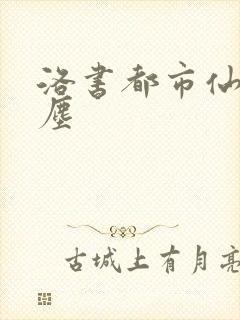 洛书都市仙
尘
古城上有月亮